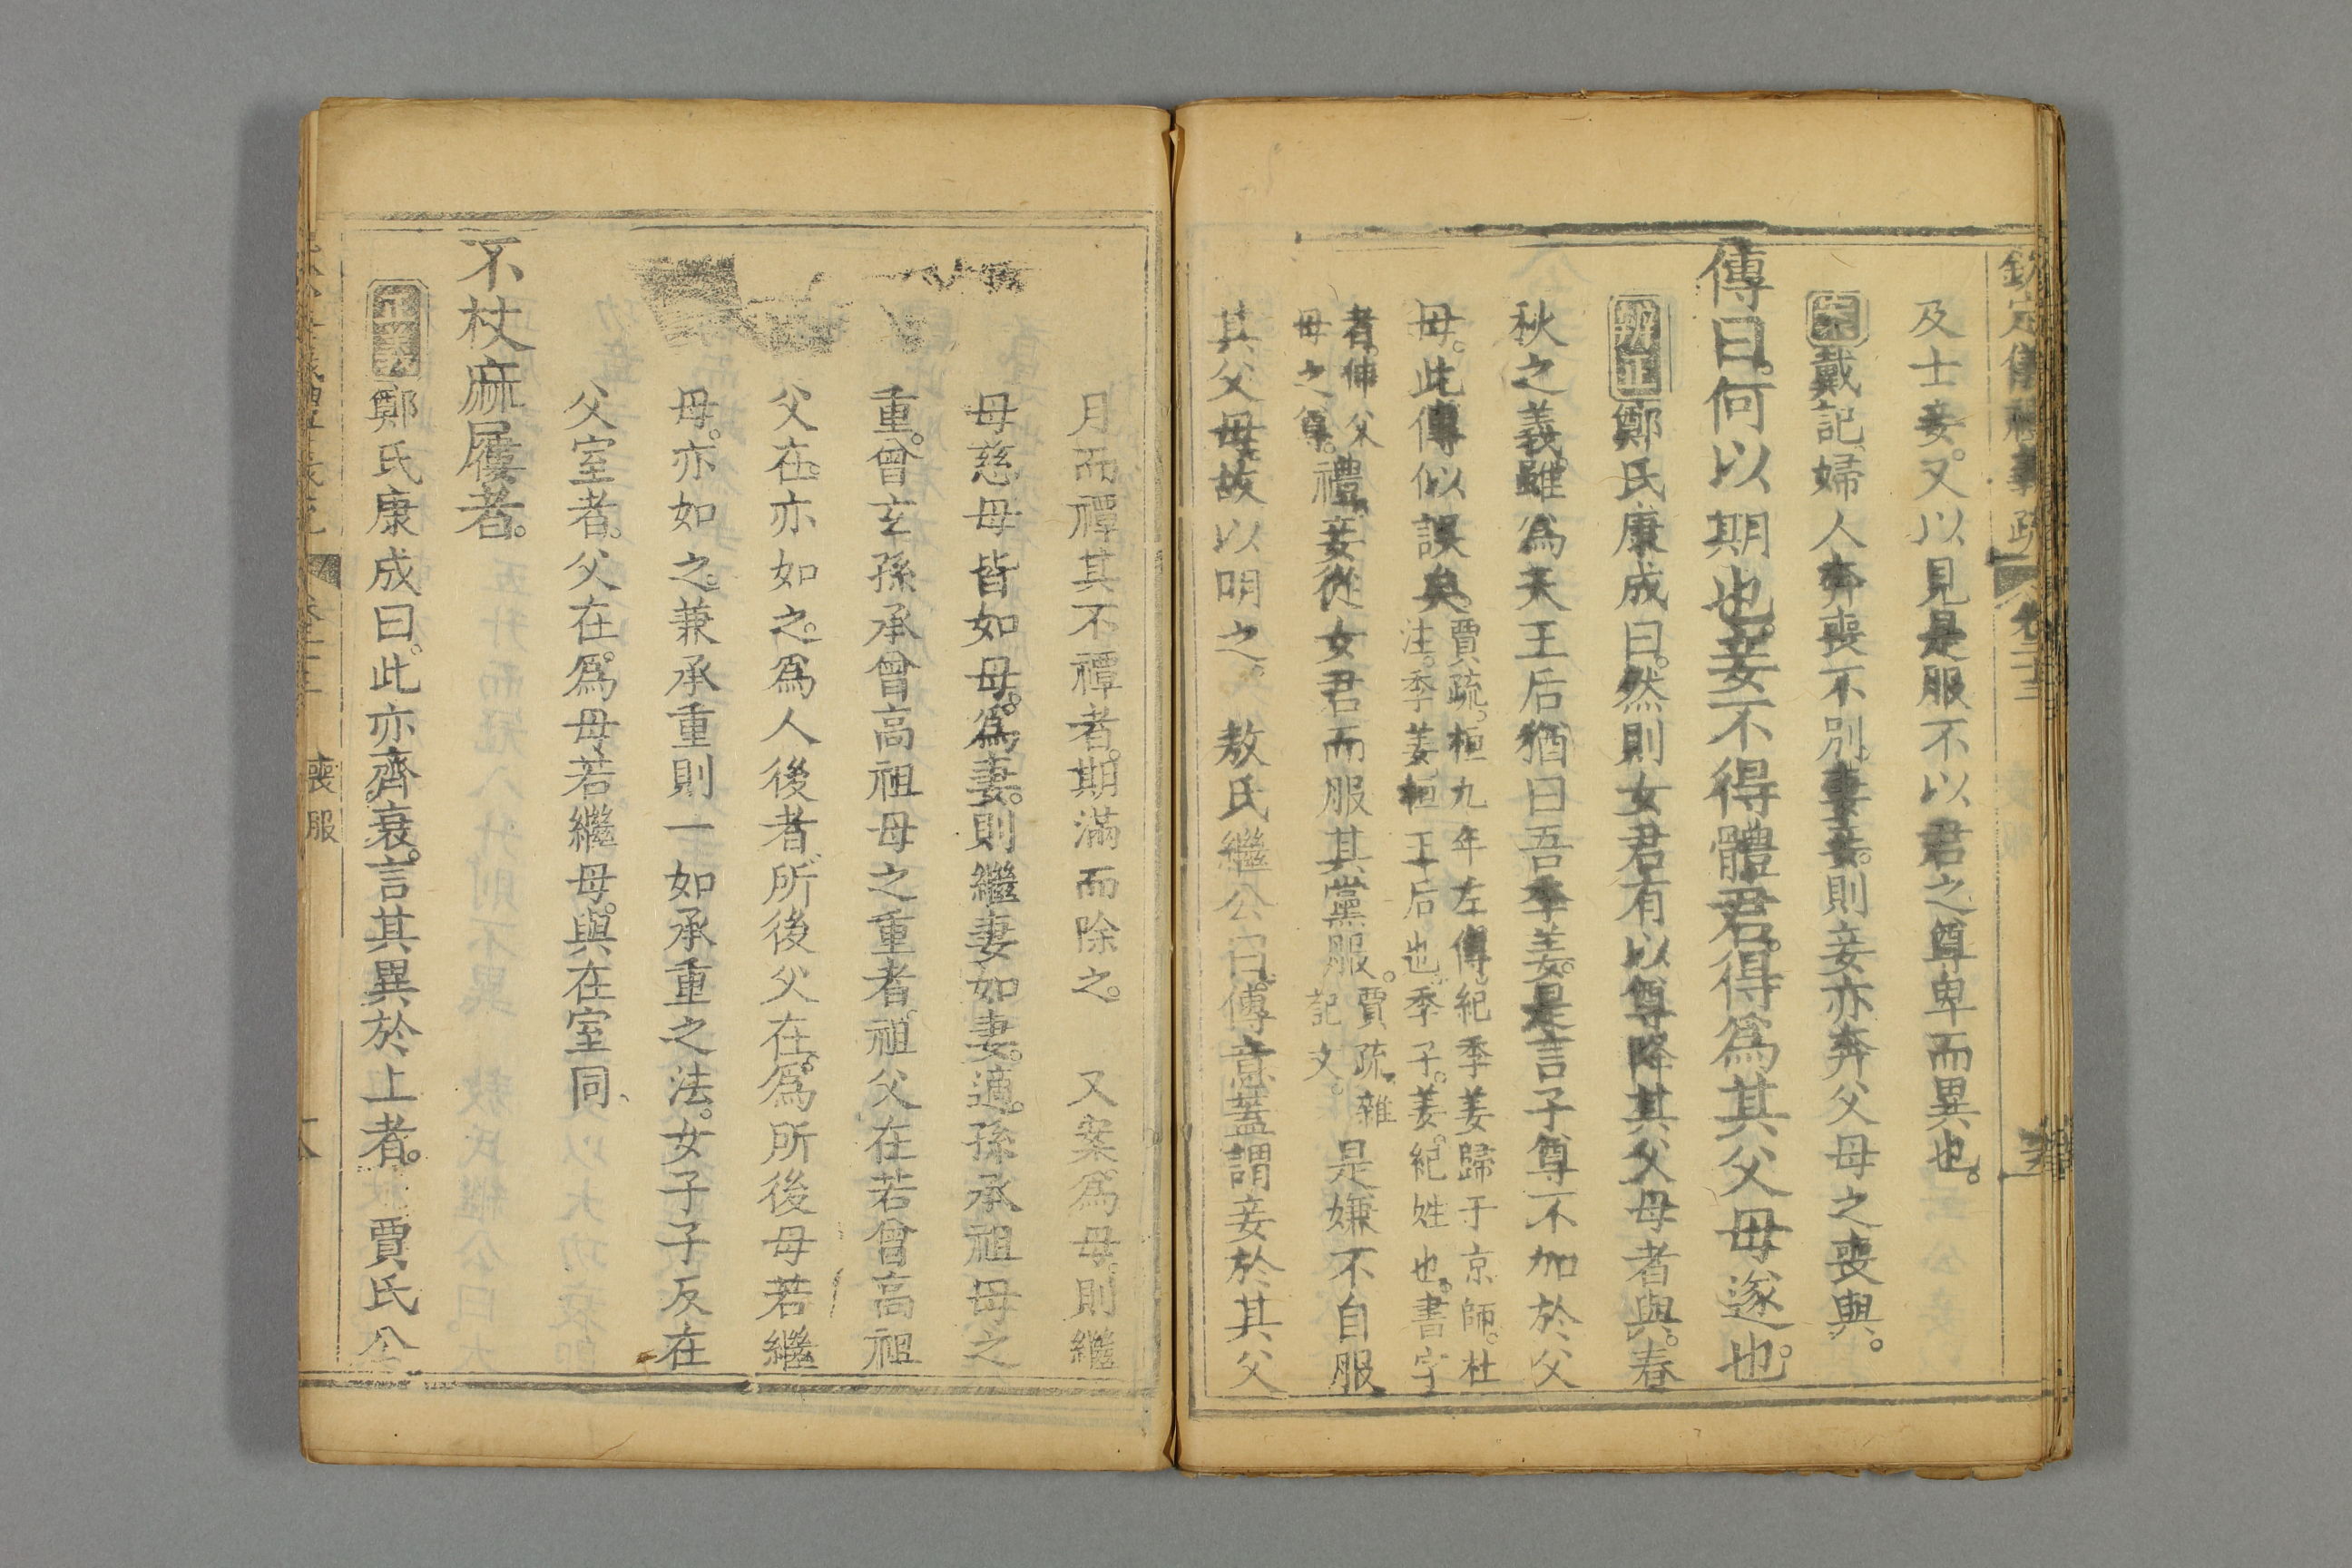 欽定儀禮義疏 卷二十三
及士妾。又以見是服不以君之尊卑而異也。
案戴記婦人奔喪不別妻妾。則妾亦奔父母之喪與。
傳曰。何以期也。妾不得體君。得為其父母遂也。
辨正鄭氏康成曰。然則女君有以尊降其父母者與。春
秋之義。雖為天王后。猶曰吾季姜。是言子尊不加於父
母。此傳似誤矣。賈疏。桓九年左傳。紀季姜歸于京師。杜
注。季姜。桓王后也。季字。姜。紀姓也。書字
者。伸父
母之尊。禮。妾從女君而服其黨服。賈疏。雜
記文。是嫌不自服
其父母。故以明之。 敖氏繼公曰。傳意蓋謂妾於其父
月而禫其不禫者。期滿而除之。 又案為母。則繼
母慈母皆如母。為妻。則繼妻如妻。適孫承祖母之
重。曾玄孫承曾高祖母之重者。祖父在若曾高祖
父在。亦如之。為人後者。所後父在。為所後母若繼
母。亦如之。兼承重則一如承重之法。女子子反在
父室者。父在。為母若繼母。與在室同、
不杖麻屨者。
正義鄭氏康成曰。此亦齊衰。言其異於上者。 賈氏公
喪服